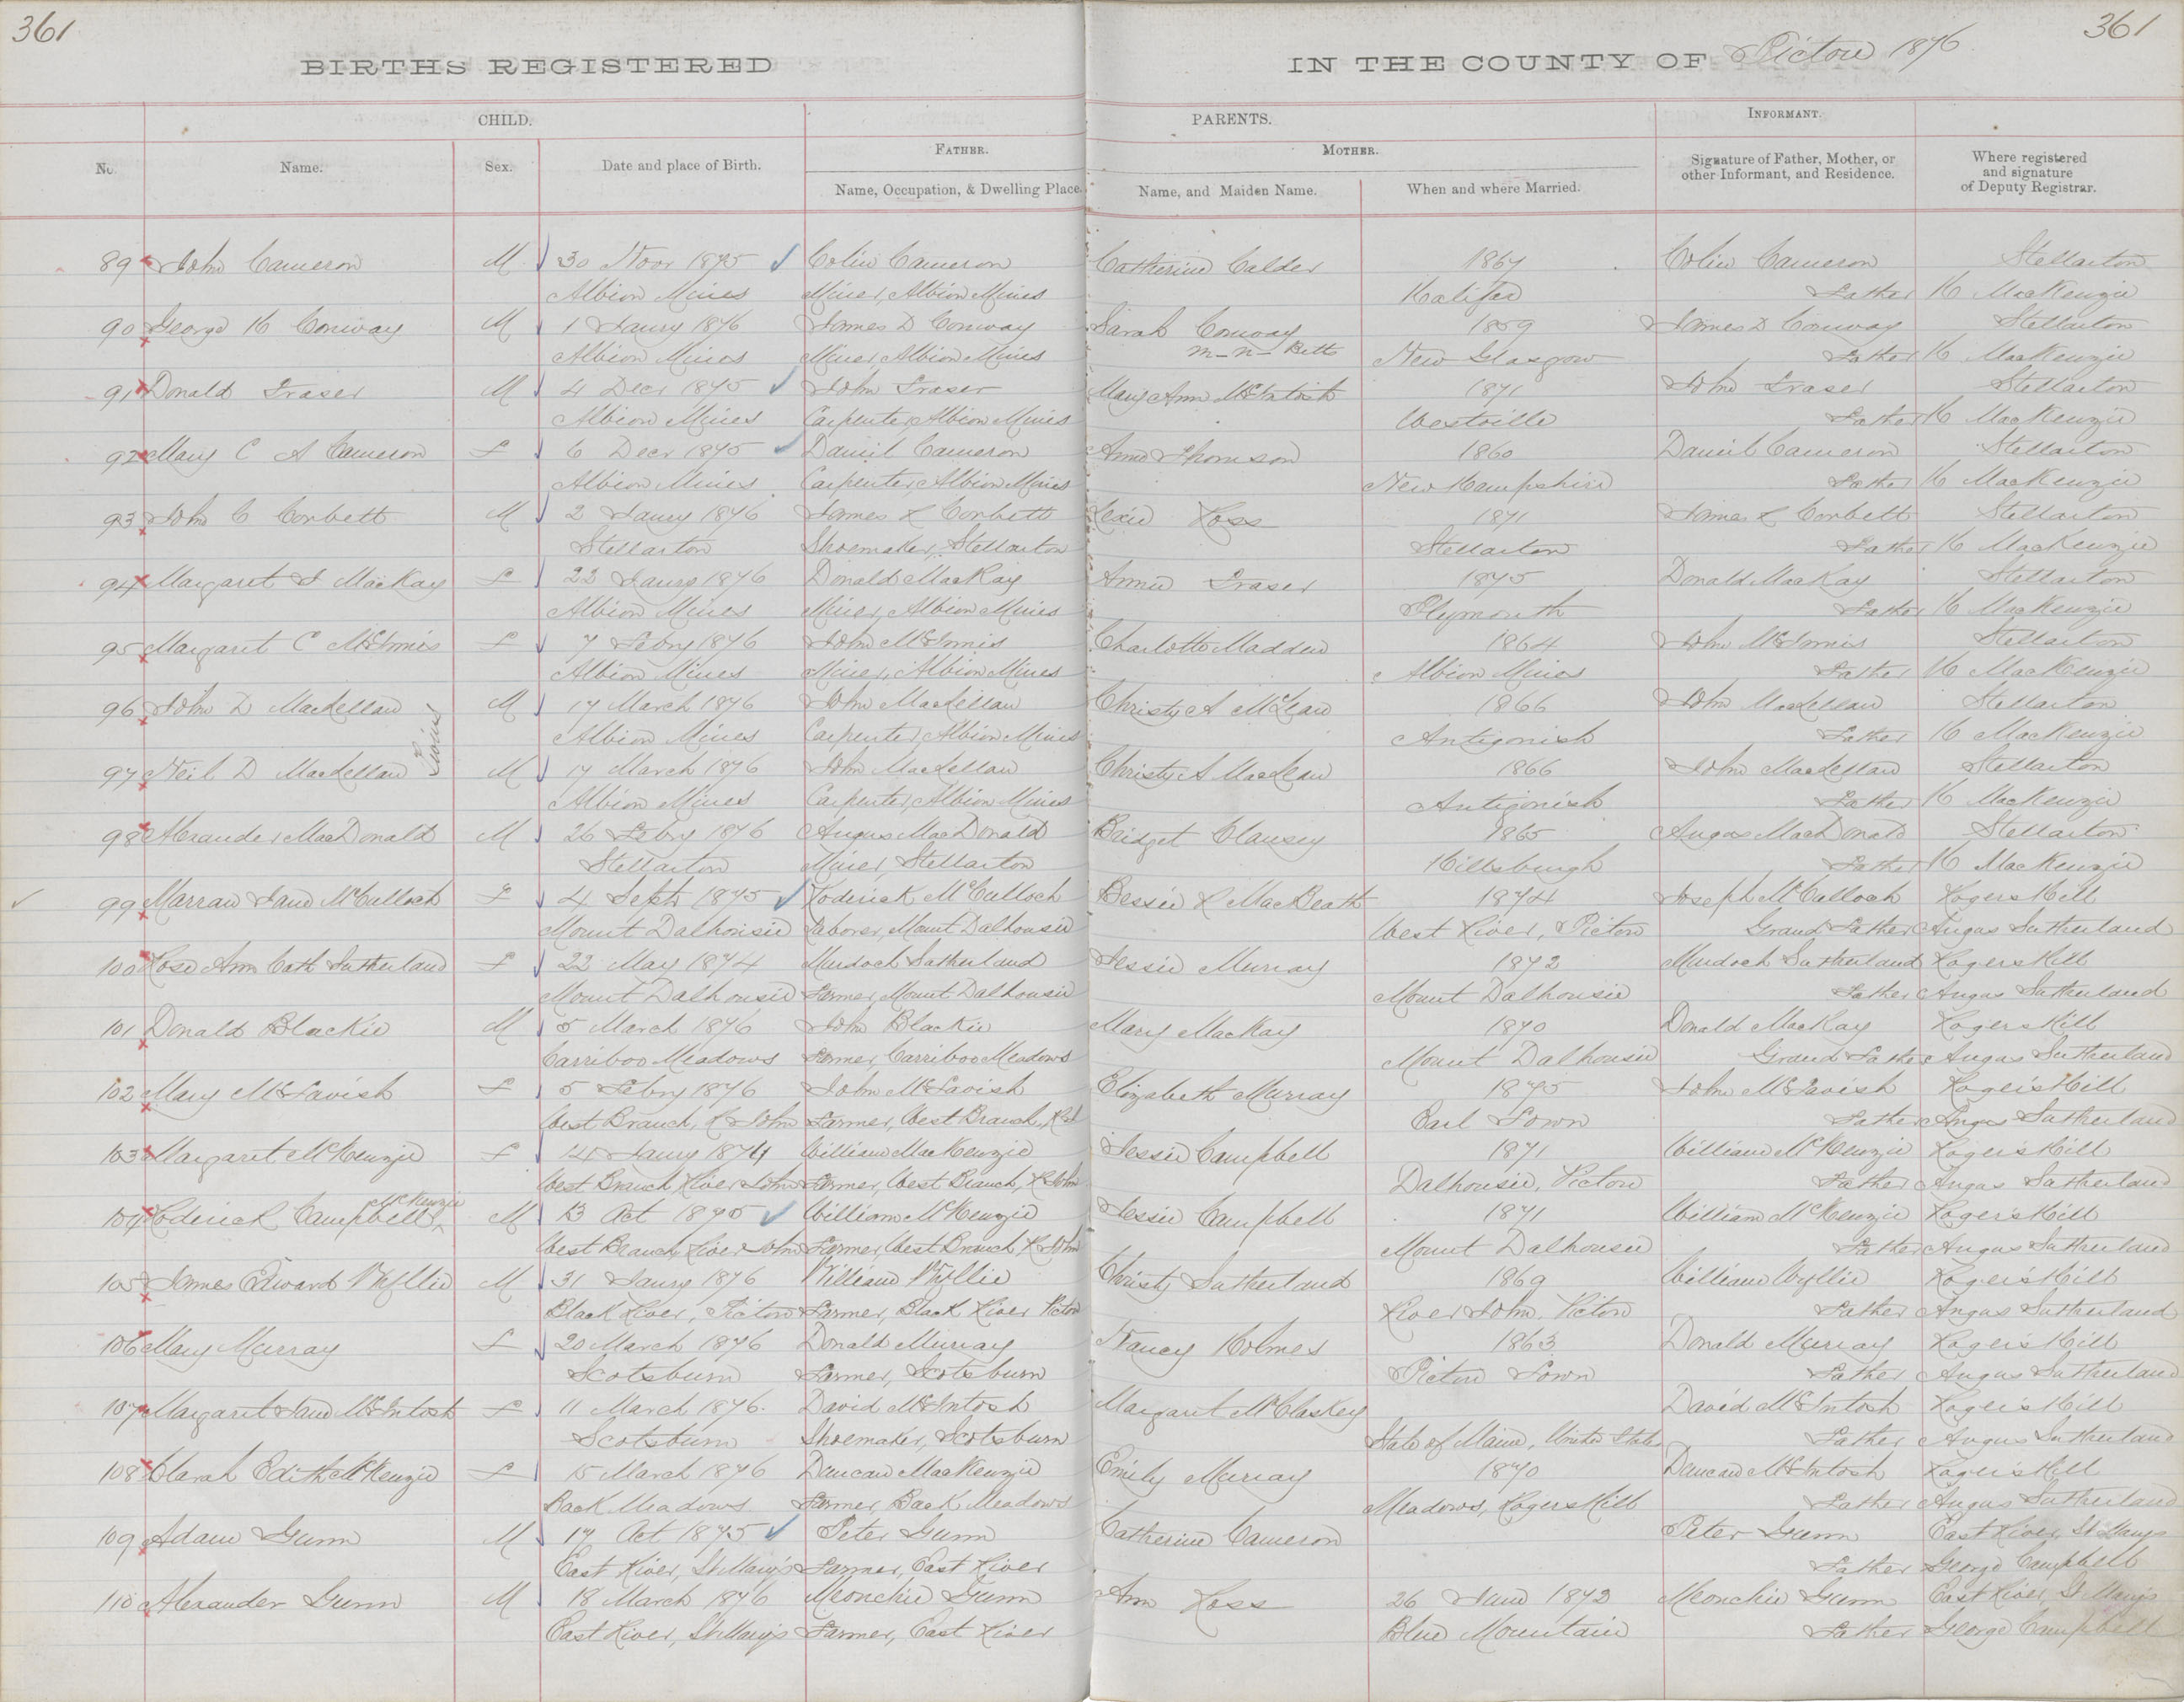 361
361
BIRTHS REGISTERED
IN THE COUNTY OF Pictou 1876
CHILD.
PARENTS.
INFORMANT.
No. Name. Sex. Date and place of Birth.
FATHER.
Name, Occupation, & Dwelling Place.
MOTHER.
Name, and Maiden Name. When and where Married.
Signature of Father, Mother, or
other Informant, and Residence.
Where registered
and signature
of Deputy Registrar.
89 John Cameron M 30 Novr 1875 Colin Cameron Catherine Calder 1867 Colin Cameron Stellarton
Albion Mines Miner, Albion Mines Halifax Father H MacKenzie
90 George H Conway M 1 Jany 1876 James D Conway Sarah Conway 1859 James D Conway Stellarton
Albion Mines Miner, Albion Mines m-n- Betts New Glasgow Father H MacKenzie
91 Donald Fraser M 4 Decr 1875 John Fraser Mary Ann McIntosh 1871 John Fraser Stellarton
Albion Mines Carpenter, Albion Mines Westville Father H MacKenzie
92 Mary C A Cameron F 6 Decr 1875 Daniel Cameron Anne Thomson 1860 Daniel Cameron Stellarton
Albion Mines Carpenter, Albion Mines New Hampshire Father H MacKenzie
93 John C Corbett M 2 Jany 1876 James R Corbett Lexie Ross 1871 James R Corbett Stellarton
Stellarton Shoemaker, Stellarton Stellarton Father H MacKenzie
94 Margaret J MacKay F 22 Jany 1876 Donald MacKay Annie Fraser 1875 Donald MacKay Stellarton
Albion Mines Miner, Albion Mines Plymouth Father H MacKenzie
95 Margaret C McInnis F 7 Febry 1876 John McInnis Charlotte Madden 1864 John McInnis Stellarton
Albion Mines Miner, Albion Mines Albion Mines Father H MacKenzie
96 John D MacLellan M 17 March 1876 John MacLellan Christy A McLean 1866 John MacLellan Stellarton
Twins
Albion Mines Carpenter, Albion Mines Antigonish Father H MacKenzie
97 Neil D MacLellan M 17 March 1876 John MacLellan Christy A MacLean 1866 John MacLellan Stellarton
Albion Mines Carpenter, Albion Mines Antigonish Father H MacKenzie
98 Alexander MacDonald M 26 Febry 1876 Angus MacDonald Bridget Clansey 1865 Angus MacDonald Stellarton
Stellarton Miner, Stellarton Hillsburgh Father H MacKenzie
99 Marran Jane McCulloch F 4 Septr 1875 Roderick McCulloch Bessie R MacBeath 1874 Joseph McCulloch Rogers Hill
Mount Dalhousie Laborer, Mount Dalhousie West River, Pictou Grand Father Angus Sutherland
100 Rose Ann Cath Sutherland F 22 May 1874 Murdoch Sutherland Jessie Murray 1872 Murdoch Sutherland Rogers Hill
Mount Dalhousie Farmer, Mount Dalhousie Mount Dalhousie Father Angus Sutherland
101 Donald Blackie M 5 March 1876 John Blackie Mary MacKay 1870 Donald MacKay Rogers Hill
Carriboo Meadows Farmer, Carriboo Meadows Mount Dalhousie Grand Father Angus Sutherland
102 Mary McTavish F 5 Febry 1876 John McTavish Elizabeth Murray 1875 John McTavish Roger's Hill
West Branch, R John Farmer, West Branch, Earl Town Father Angus Sutherland
103 Margaret McKenzie F Jany 1874 William MacKenzie Jessie Campbell 1871 William McKenzie Roger's Hill
West Branch River John Farmer, West Branch, R John Dalhousie, Pictou Father Angus Sutherland
104 Roderick Campbell McKenzie M 13 Oct 1875 William McKenzie Jessie Campbell 1871 William McKenzie Roger's Hill
West Branch, River John Farmer, West Branch R John Mount Dalhousie Father Angus Sutherland
105 James Edward Wyllie M 31 Jany 1876 William Wyllie Christy Sutherland 1869 William Wyllie Roger's Hill
Black River, Pictou Farmer, Black River Pictou River John, Pictou Father Angus Sutherland
106 Mary Murray F 20 March 1876 Donald Murray Nancy Holmes 1863 Donald Murray Roger's Hill
Scotsburn Farmer, Scotsburn Pictou Town Father Angus Sutherland
107 Margaret Jane McIntosh F 11 March 1876. David McIntosh Margaret McClaskey David McIntosh Roger's Hill
Scotsburn Shoemaker, Scotsburn State of Maine, United States Father Angus Sutherland
108 Clarah Edith McKenzie F 15 March 1876 Duncan MacKenzie Emily Murray 1870 Duncan McIntosh Roger's Hill
Back Meadows Farmer, Back Meadows Meadows, Rogers Hill Father Angus Sutherland
109 Adam Gunn M 17 Oct 1875 Peter Gunn Catherine Cameron Peter Gunn East River, St Marys
East River, St Mary's Farmer, East River Father George Campbell
110 Alexander Gunn M 18 March 1876 Meonchie Gunn Ann Ross 26 June 1872 Meonchie Gunn East River, St Mary's
East River, St Mary's Farmer, East River Blue Mountain Father George Campbell